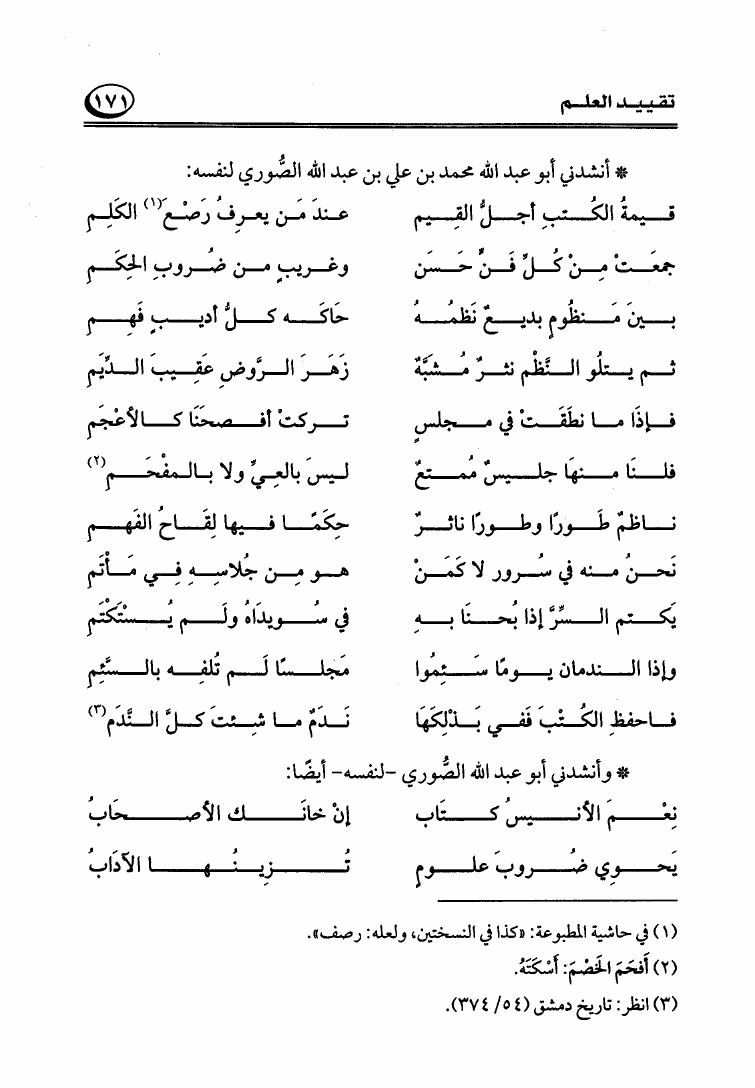 تقييد العلم ١٧١
* أنشدني أبو عبد الله محمد بن علي بن عبد الله الصُّوري لنفسه:
قيمةُ الكُتبِ أجلُّ القِيم عندَ مَن يعرِفُ رَصْعَ(١) الكَلِم
جمعَتْ مِنْ كُلِّ فَنٍّ حَسَن وغريبٍ من ضُروبِ الحِكَم
بينَ مَنظُومٍ بديعٌ نَظمُهُ حَاكَه كلُّ أديبٍ فَهِم
ثم يتلُو النَّظْم نثرٌ مُشبَّهٌ زَهَرَ الرَّوضِ عَقيبَ الدِّيَم
فإذَا ما نطَقَتْ في مجلسٍ تركتْ أفصحنَا كالأعْجَم
فلنَا منهَا جليسٌ مُمتعٌ ليسَ بالعيِّ ولا بالمفْحَم(٢)
ناظمٌ طَورًا وطورًا ناثرٌ حِكمًا فيها لِقَاحُ الفَهم
نَحنُ منه في سُرور لا كَمَنْ هو مِن جُلاسِه في مَأتَم
يَكتم السرَّ إذا بُحنَا بهِ في سُويدَاهُ ولَم يُسْتَكتَم
وإذا الندمان يومًا سَئِمُوا مَجلسًا لَم تُلفه بالسَّئِم
فاحفظِ الكُتْبَ فَفي بَذْلِكهَا نَدَمٌ ما شِئتَ كلَّ النَّدَم(٣)
* وأنشدني أبو عبد الله الصُّوري -لنفسه- أيضًا:
نِعْمَ الأنيسُ كتَاب إنْ خانَك الأصحَابُ
يَحوِي ضُروبَ علومٍ تُزينُها الآدَابُ
(١) في حاشية المطبوعة: «كذا في النسختين، ولعله: رصف».
(٢) أَفحَمَ الخَصْمَ: أَسْكَتَهُ.
(٣) انظر: تاريخ دمشق (٥٤/ ٣٧٤).